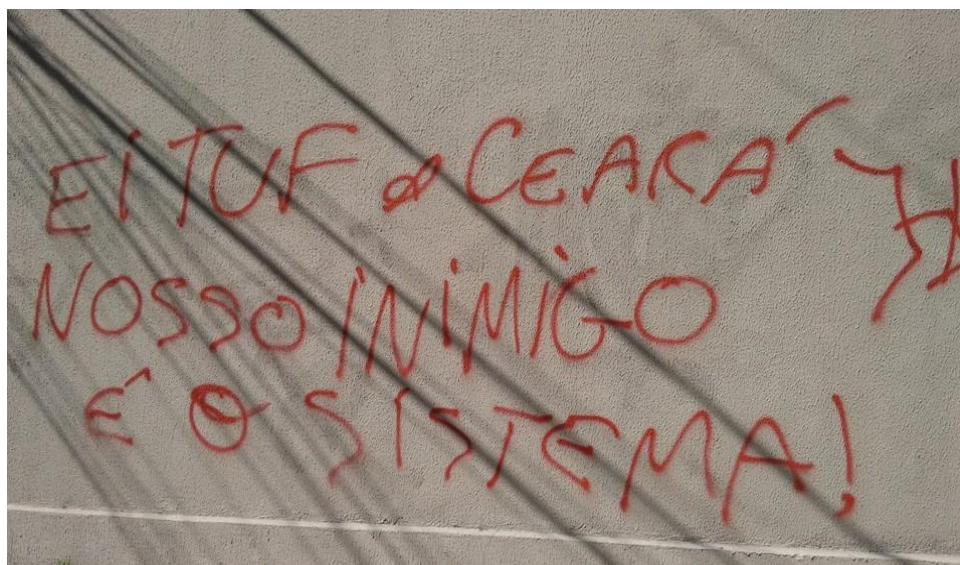 EI TUF CEARÁ
NOSSO INIMIGO
É O SISTEMA!